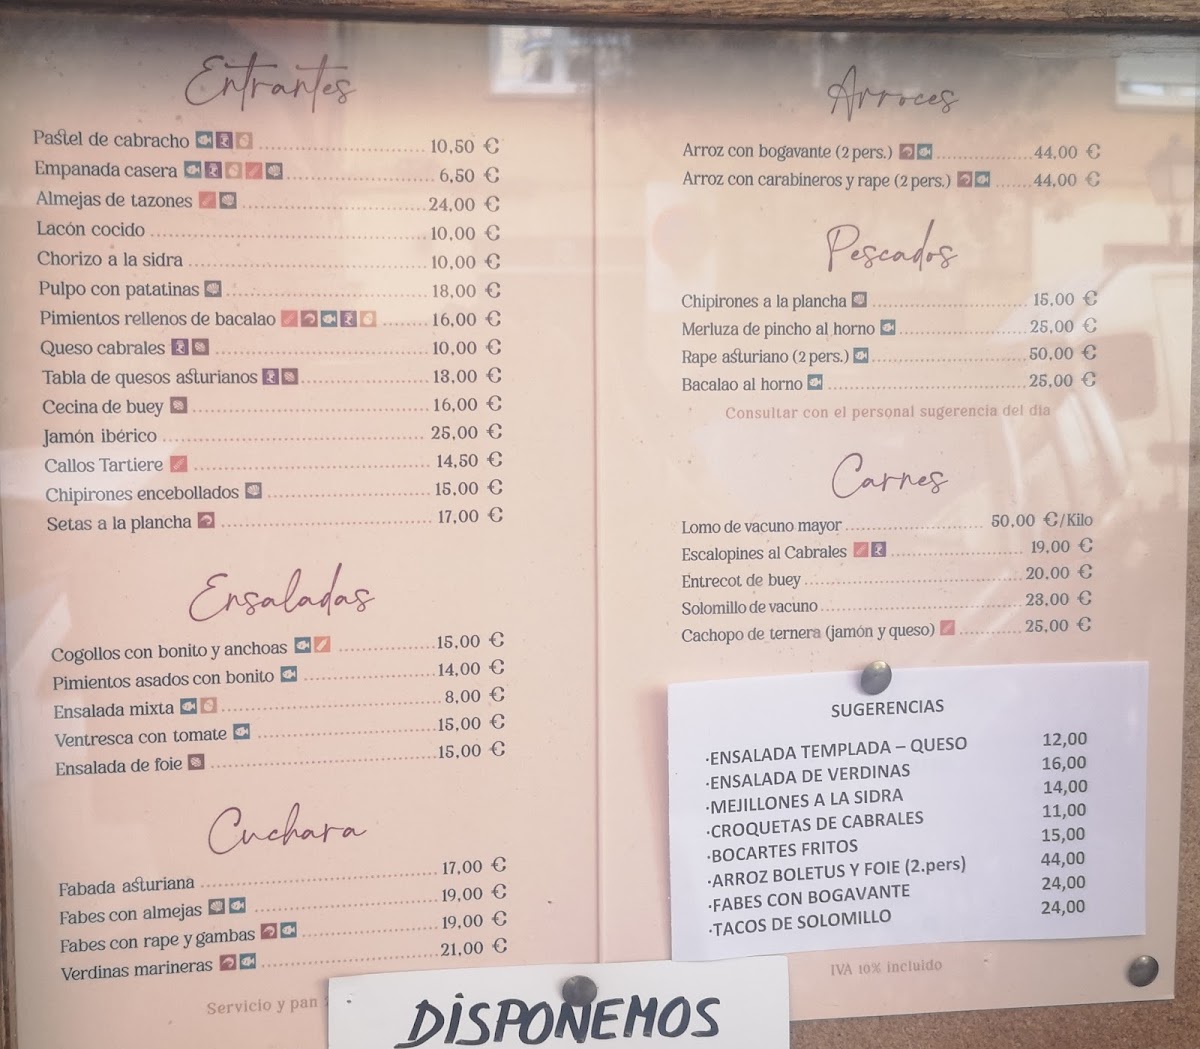 Entrantes
Pastel de cabracho 10,50 €
Empanada casera 6,50 €
Almejas de tazones 24,00 €
Lacón cocido 10,00 €
Chorizo a la sidra 10,00 €
Pulpo con patatinas 18,00 €
Pimientos rellenos de bacalao 16,00 €
Queso cabrales 10,00 €
Tabla de quesos asturianos 18,00 €
Cecina de buey 16,00 €
Jamón ibérico 25,00 €
Callos Tartiere 14,50 €
Chipirones encebollados 15,00 €
Setas a la plancha 17,00 €
Ensaladas
Cogollos con bonito y anchoas 15,00 €
Pimientos asados con bonito 14,00 €
Ensalada mixta 8,00 €
Ventresca con tomate 15,00 €
Ensalada de foie 15,00 €
Cuchara
Fabada asturiana 17,00 €
Fabes con almejas 19,00 €
Fabes con rape y gambas 19,00 €
Verdinas marineras 21,00 €
Servicio y pan
Arroces
Arroz con bogavante (2 pers.) 44,00 €
Arroz con carabineros y rape (2 pers.) 44,00 €
Pescados
Chipirones a la plancha 15,00 €
Merluza de pincho al horno 25,00 €
Rape asturiano (2 pers.) 50,00 €
Bacalao al horno 25,00 €
Consultar con el personal sugerencia del día
Carnes
Lomo de vacuno mayor 50,00 €/Kilo
Escalopines al Cabrales 19,00 €
Entrecot de buey 20,00 €
Solomillo de vacuno 23,00 €
Cachopo de ternera (jamón y queso) 25,00 €
SUGERENCIAS
·ENSALADA TEMPLADA – QUESO 12,00
·ENSALADA DE VERDINAS 16,00
·MEJILLONES A LA SIDRA 14,00
·CROQUETAS DE CABRALES 11,00
·BOCARTES FRITOS 15,00
·ARROZ BOLETUS Y FOIE (2.pers) 44,00
·FABES CON BOGAVANTE 24,00
·TACOS DE SOLOMILLO 24,00
IVA 10% incluido
DISPONEMOS